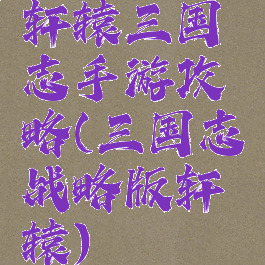 轩辕三国
志手游攻
略(三国志
战略版轩
辕)